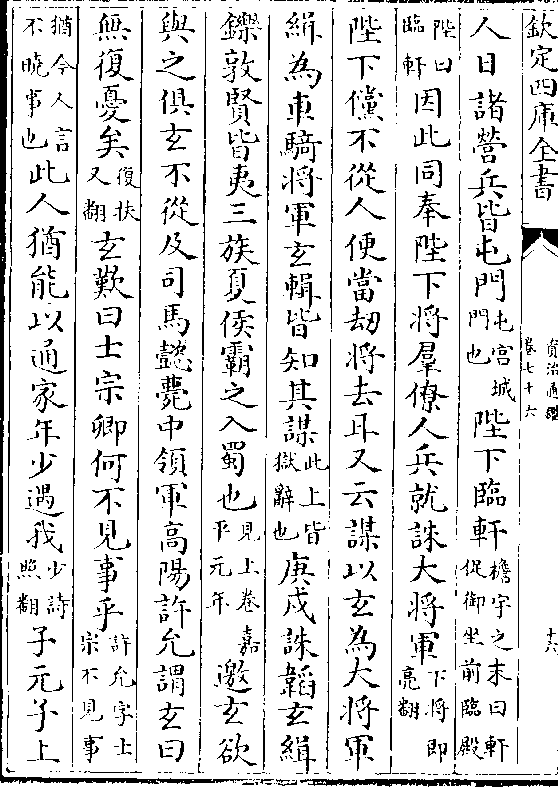 欽定四庫全書
資治通鑑
卷七十六
十六
人日諸營兵皆屯門屯宮城門也陛下臨軒檐宇之末曰軒從御坐前臨殿
陛曰臨軒因此同奉陛下將羣僚人兵就誅大將軍下將即亮翻
陛下儻不從人便當劫將去耳又云謀以玄為大將軍
緝為車騎將軍玄輯皆知其謀此上皆獄辭也庚戌誅韜玄緝
鑠敦賢皆夷三族夏侯霸之入蜀也見上卷嘉平元年邀玄欲
與之俱玄不從及司馬懿薨中領軍高陽許允謂玄曰
無復憂矣復扶又翻玄歎曰士宗卿何不見事乎許允字士宗不見事
猶今人言不曉事也此人猶能以通家年少遇我少詩照翻子元子上